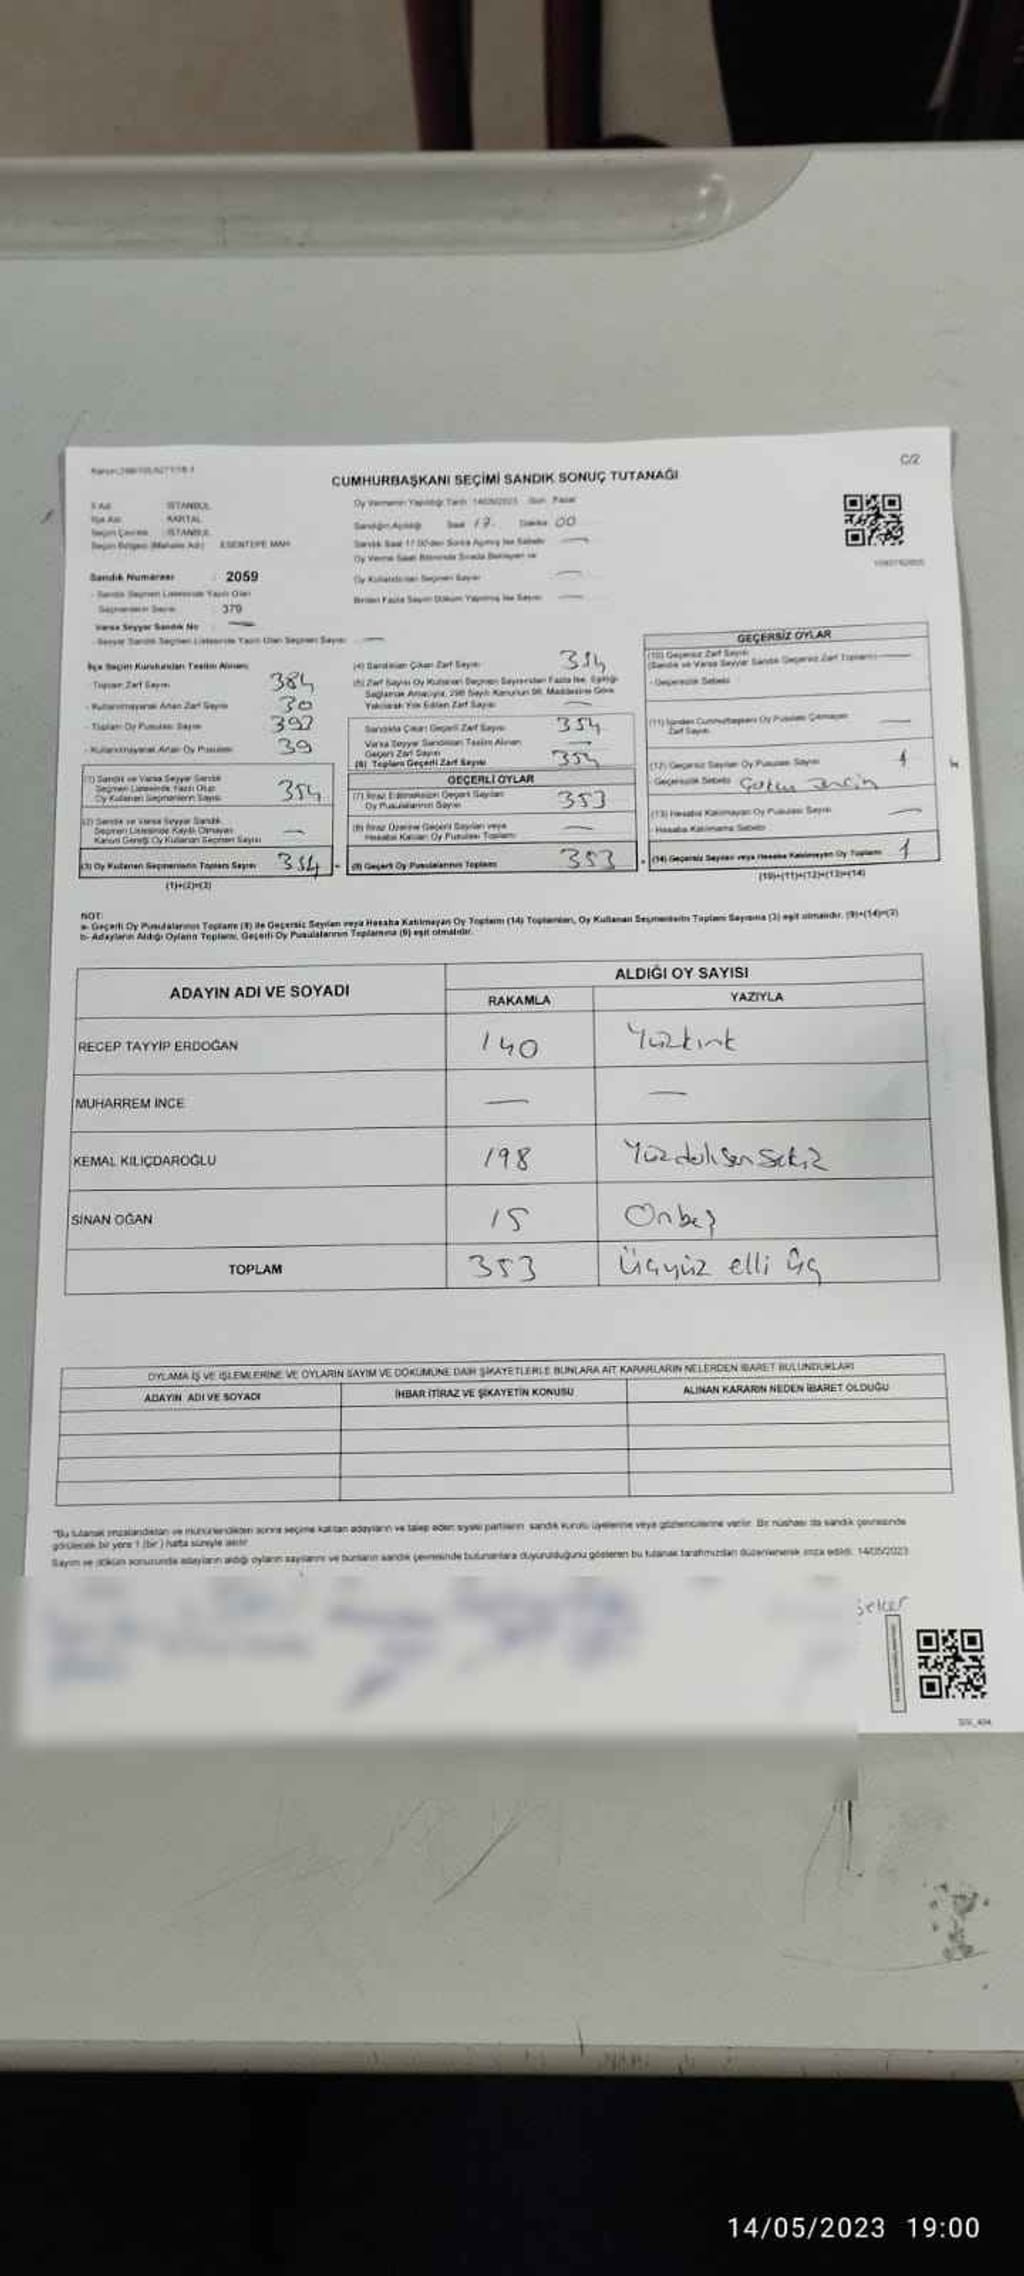 C/2
CUMHURBAŞKANI SEÇİMİ SANDIK SONUÇ TUTANAĞI
İl Adı : İSTANBUL
İlçe Adı : KARTAL
Seçim Çevresi : İSTANBUL
Seçim Bölgesi (Mahalle Adı) : ESENTEPE MAH
Oy Vermenin Yapıldığı Tarih 14/05/2023 Gün Pazar
Sandığın Açıldığı Saat 17 Dakika 00
Oy Kullandırılan Seçmen Sayısı —
Sandık Numarası : 2059
- Sandık Seçmen Listesinde Yazılı Olan
Seçmenlerin Sayısı : 379
Varsa Seyyar Sandık No : —
- Seyyar Sandık Seçmen Listesinde Yazılı Olan Seçmen Sayısı : —
İlçe Seçim Kurulundan Teslim Alınan;
- Toplam Zarf Sayısı 384
- Kullanılmayarak Artan Zarf Sayısı 30
- Toplam Oy Pusulası Sayısı 392
- Kullanılmayarak Artan Oy Pusulası 39
(1) Sandık ve Varsa Seyyar Sandık
Seçmen Listesinde Yazılı Olup
Oy Kullanan Seçmenlerin Sayısı 354
(2) Sandık ve Varsa Seyyar Sandık
Seçmen Listesinde Kayıtlı Olmayan
Kanun Gereği Oy Kullanan Seçmen Sayısı —
(3) Oy Kullanan Seçmenlerin Toplam Sayısı 354
(1)+(2)=(3)
(4) Sandıktan Çıkan Zarf Sayısı 354
(5) Zarf Sayısı Oy Kullanan Seçmen Sayısından Fazla İse, Eşitliği
Sağlamak Amacıyla, 298 Sayılı Kanunun 98. Maddesine Göre
Yakılarak Yok Edilen Zarf Sayısı —
Sandıkta Çıkan Geçerli Zarf Sayısı 354
Varsa Seyyar Sandıktan Teslim Alınan
Geçerli Zarf Sayısı —
(6) Toplam Geçerli Zarf Sayısı 354
GEÇERLİ OYLAR
(7) İtiraz Edilmeksizin Geçerli Sayılan
Oy Pusulalarının Sayısı 353
(8) İtiraz Üzerine Geçerli Sayılan veya
Hesaba Katılan Oy Pusulası Toplamı —
(9) Geçerli Oy Pusulalarının Toplamı 353
GEÇERSİZ OYLAR
(10) Geçersiz Zarf Sayısı
(Sandık ve Varsa Seyyar Sandık Geçersiz Zarf Toplamı) —
- Geçersizlik Sebebi
(11) İçinden Cumhurbaşkanı Oy Pusulası Çıkmayan
Zarf Sayısı —
(12) Geçersiz Sayılan Oy Pusulası Sayısı 1
Geçersizlik Sebebi
(13) Hesaba Katılmayan Oy Pusulası Sayısı —
- Hesaba Katılmama Sebebi
(14) Geçersiz Sayılan veya Hesaba Katılmayan Oy Toplamı 1
(10)+(11)+(12)+(13)=(14)
NOT:
a- Geçerli Oy Pusulalarının Toplamı (9) ile Geçersiz Sayılan veya Hesaba Katılmayan Oy Toplamı (14) Toplamları, Oy Kullanan Seçmenlerin Toplam Sayısına (3) eşit olmalıdır. (9)+(14)=(3)
b- Adayların Aldığı Oyların Toplamı, Geçerli Oy Pusulalarının Toplamına (9) eşit olmalıdır.
ADAYIN ADI VE SOYADI
ALDIĞI OY SAYISI
RAKAMLA YAZIYLA
RECEP TAYYİP ERDOĞAN 140 Yüzkırk
MUHARREM İNCE — —
KEMAL KILIÇDAROĞLU 198 Yüzdoksansekiz
SİNAN OĞAN 15 Onbeş
TOPLAM 353 Üçyüz elli üç
OYLAMA İŞ VE İŞLEMLERİNE VE OYLARIN SAYIM VE DÖKÜMÜNE DAİR ŞİKAYETLERLE BUNLARA AİT KARARLARIN NELERDEN İBARET BULUNDUKLARI
ADAYIN ADI VE SOYADI İHBAR İTİRAZ VE ŞİKAYETİN KONUSU ALINAN KARARIN NEDEN İBARET OLDUĞU
"Bu tutanak imzalandıktan ve mühürlendikten sonra seçime katılan adayların ve talep eden siyasi partilerin sandık kurulu üyelerine veya gözlemcilerine verilir. Bir nüshası da sandık çevresinde
görülecek bir yere 1 (bir) hafta süreyle asılır.
Sayım ve döküm sonucunda adayların aldığı oyların sayılarını ve bunların sandık çevresinde bulunanlara duyurulduğunu gösteren bu tutanak tarafımızdan düzenlenerek imza edildi. 14/05/2023
14/05/2023 19:00